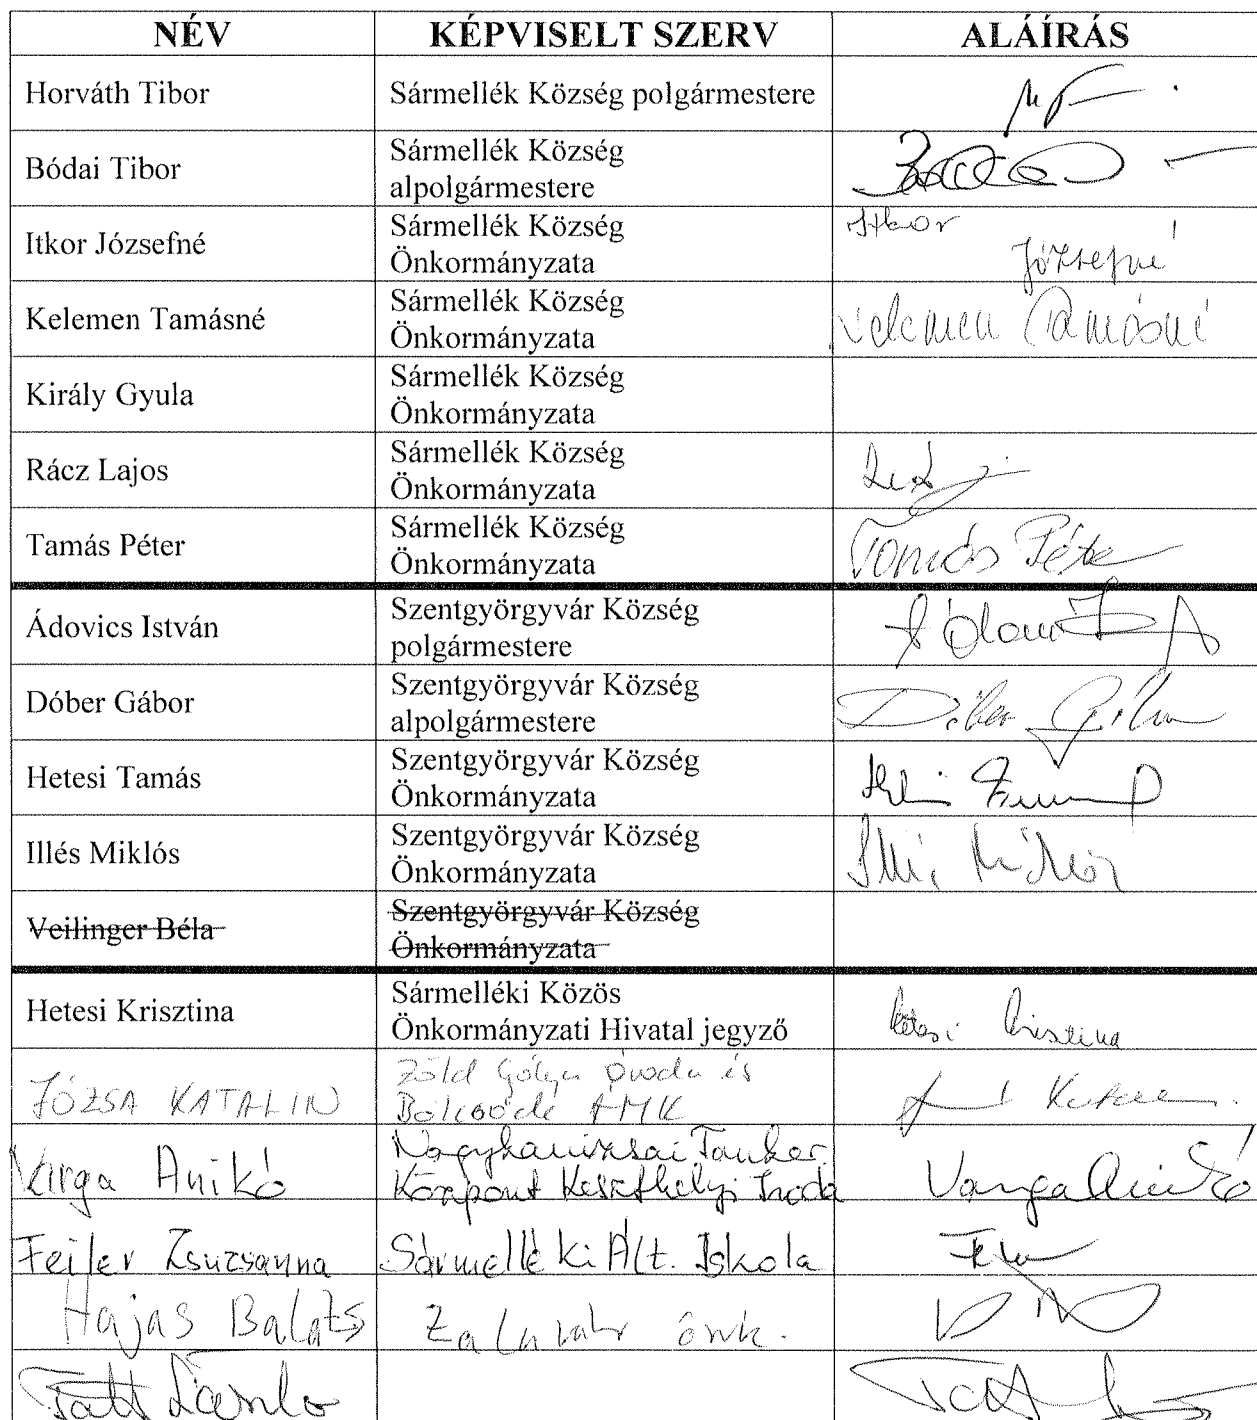 NÉV KÉPVISELT SZERV ALÁÍRÁS
Horváth Tibor Sármellék Község polgármestere
Bódai Tibor Sármellék Község
alpolgármestere
Itkor Józsefné Sármellék Község Itkor
Önkormányzata Józsefné
Kelemen Tamásné Sármellék Község
Önkormányzata Kelemen Tamásné
Király Gyula Sármellék Község
Önkormányzata
Rácz Lajos Sármellék Község
Önkormányzata
Tamás Péter Sármellék Község
Önkormányzata Tamás Péter
Ádovics István Szentgyörgyvár Község
polgármestere
Dóber Gábor Szentgyörgyvár Község
alpolgármestere Dóber Gábor
Hetesi Tamás Szentgyörgyvár Község
Önkormányzata
Illés Miklós Szentgyörgyvár Község
Önkormányzata Illés Miklós
Veilinger Béla Szentgyörgyvár Község
Önkormányzata
Hetesi Krisztina Sármelléki Közös
Önkormányzati Hivatal jegyző Hetesi Krisztina
JÓZSA KATALIN Zöld Gólya Óvoda és
Bölcsőde ÁMK
Varga Anikó Nagykanizsai Tanker.
Központ Keszthelyi Iroda Varga Anikó
Feiler Zsuzsanna Sármelléki Ált. Iskola
Hajas Balázs Zalavár önk.
László